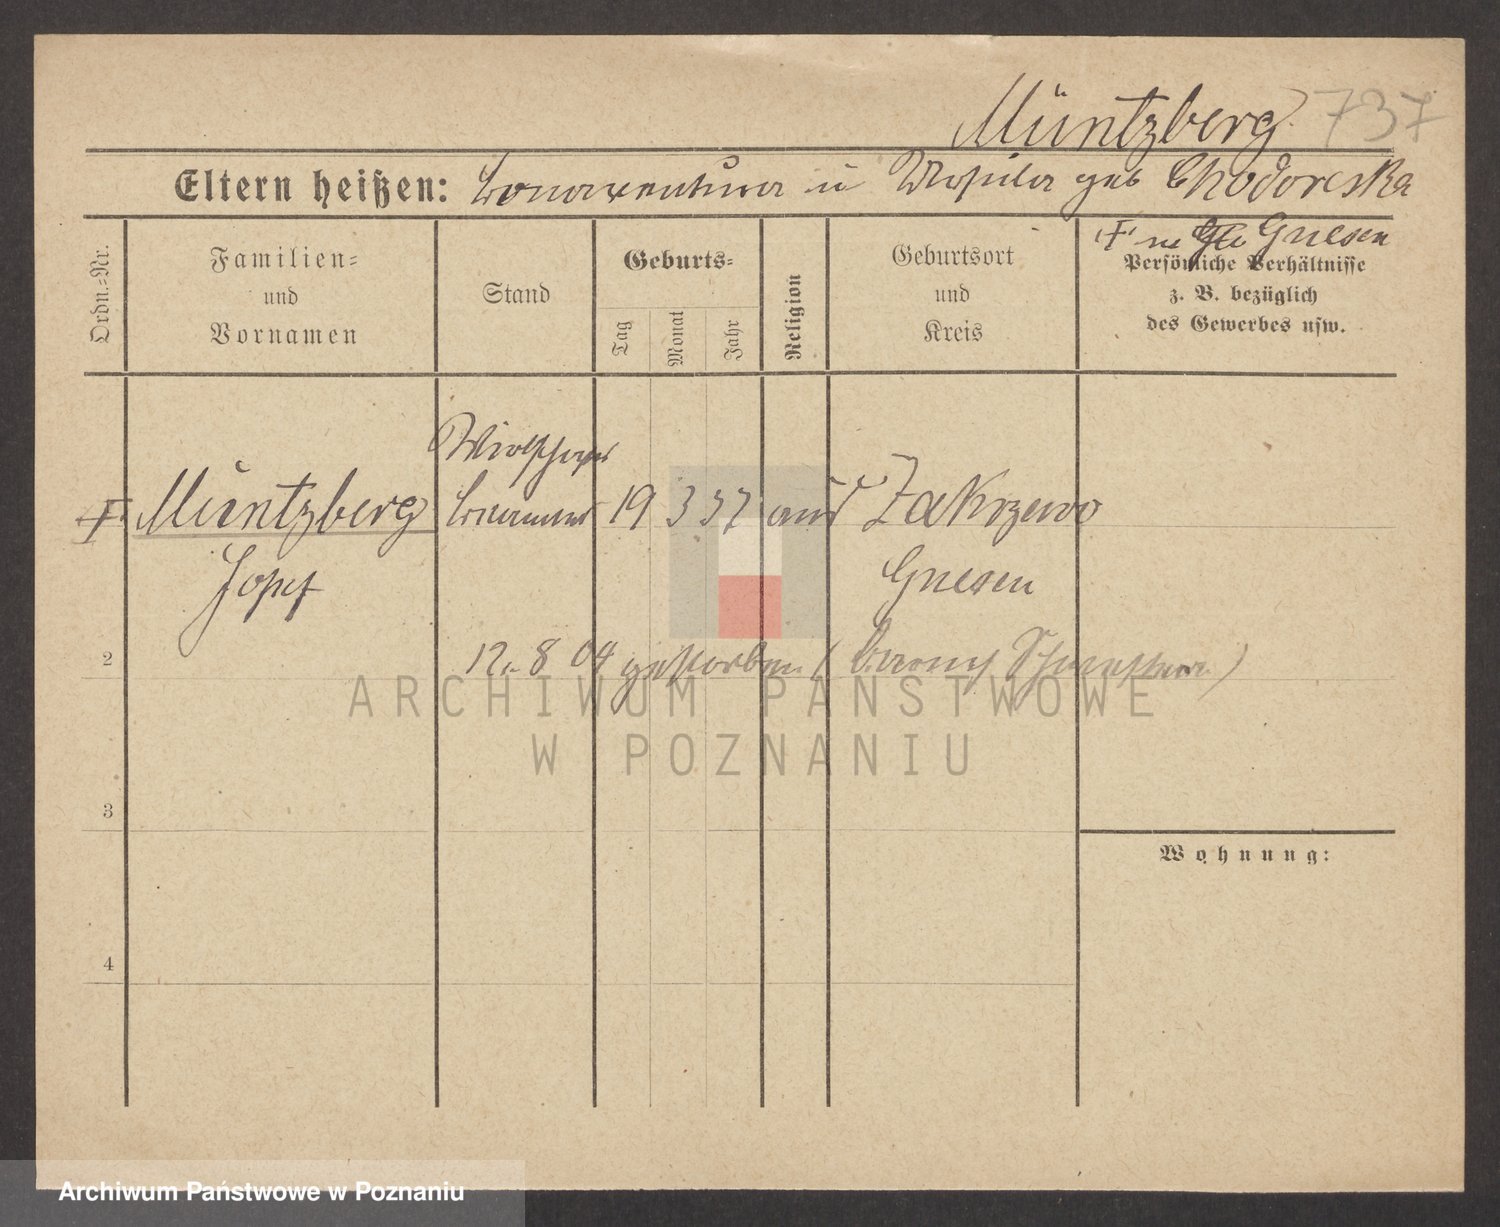 Müntzberg 737
Eltern heißen: Bonaventura u geb Chodoreska
† in Gnesen
Ordn.-Nr.
Familien-
und
Vornamen
Stand
Geburts-
Tag
Monat
Jahr
Religion
Geburtsort
und
Kreis
Persönliche Verhältnisse
z. B. bezüglich
des Gewerbes usw.
Wirtschafts
† Müntzberg Beamter 19 3 37 Zakrzewo
Josef Gnesen
2 12. 8 04 gestorben (
ARCHIWUM PAŃSTWOWE
W POZNANIU
3
Wohnung:
4
Archiwum Państwowe w Poznaniu